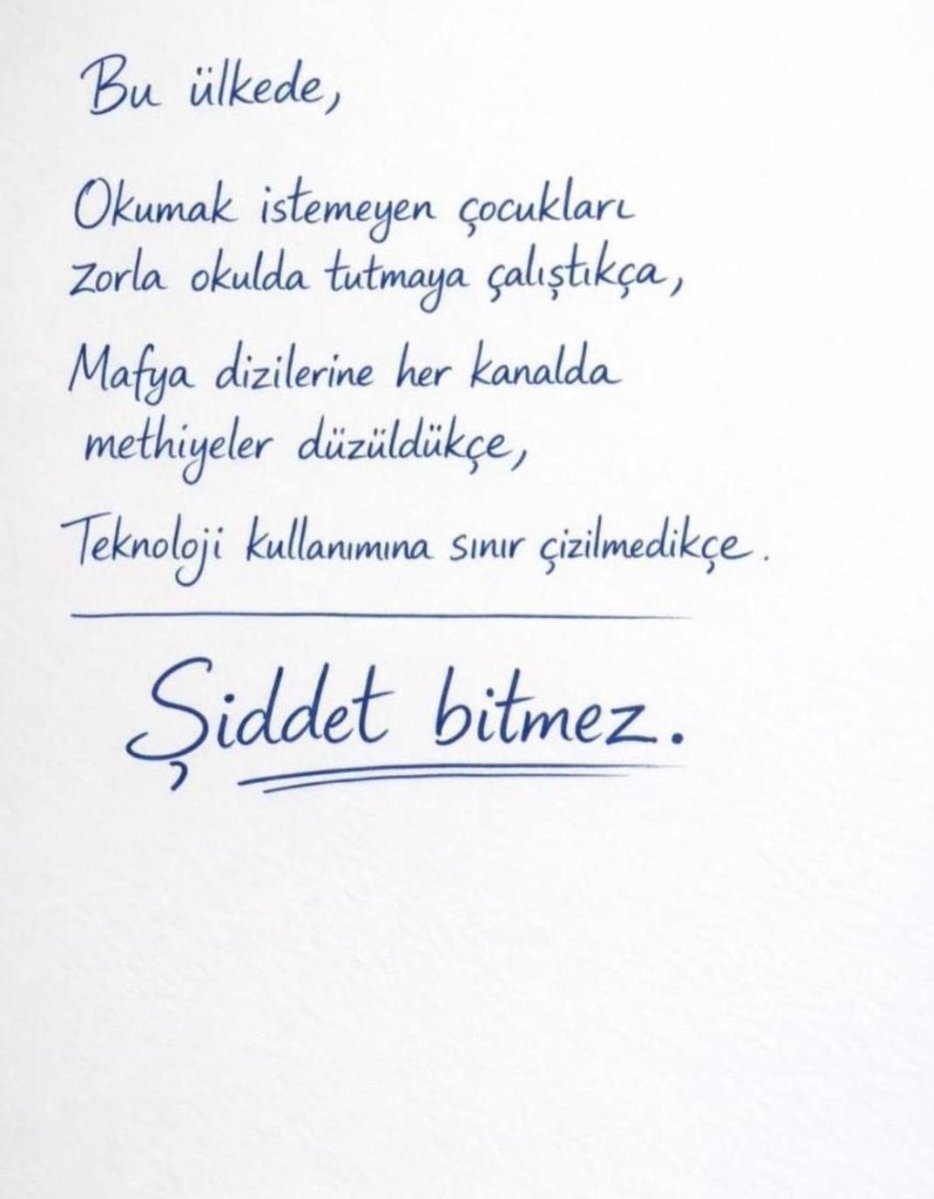 Bu ülkede,
Okumak istemeyen çocukları
zorla okulda tutmaya çalıştıkça,
Mafya dizilerine her kanalda
methiyeler düzüldükçe,
Teknoloji kullanımına sınır çizilmedikçe.
Şiddet bitmez.